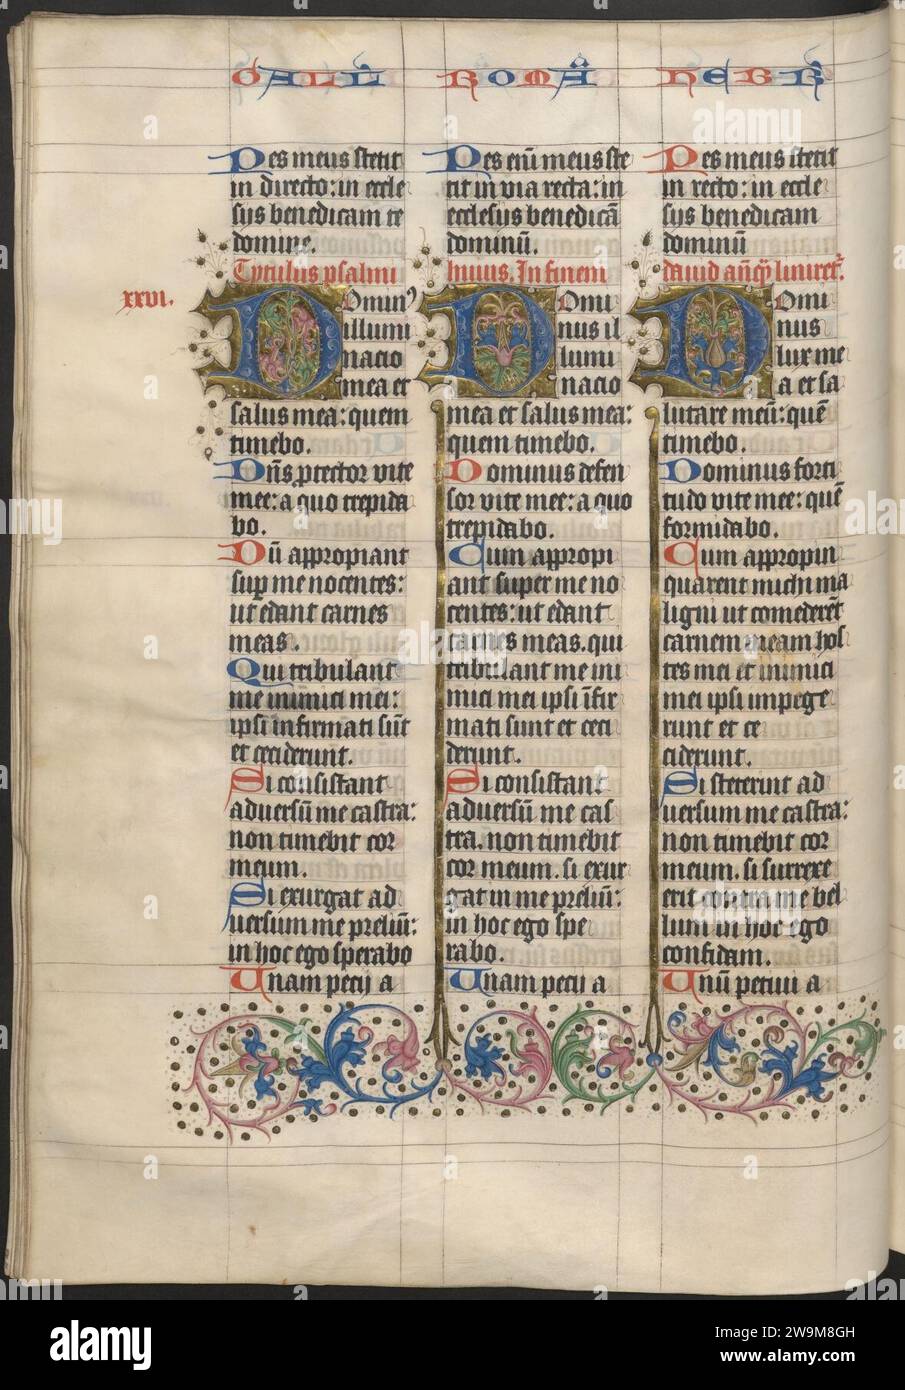 GALL
ROMĀ
HEBR
Pes meus stetit
in directo: in eccle
sijs benedicam te
domine.
Tytulus psalmi
xxvi.
Domin9
illumi
nacio
mea et
salus mea: quem
timebo.
Dn̄s ꝓtector vite
mee: a quo trepida
bo.
Dū appropiant
suꝑ me nocentes:
ut edant carnes
meas.
Qui tribulant
me inimici mei:
ipsi infirmati sūt
et ceciderunt.
Si consistant
adversū me castra:
non timebit cor
meum.
Si exurgat ad
versum me preliū:
in hoc ego sperabo
Unam pecij a
Pes eni̅ meus ste
tit in via recta: in
ecclesijs benedicā
dominū.
huius. In finem
Domi
nus il
lumi
nacio
mea et salus mea:
quem timebo.
Dominus defen
sor vite mee: a quo
trepidabo.
Cum appropi
ant super me no
centes: ut edant
carnes meas. qui
tribulant me ini
mici mei ipsi īfir
mati sunt et ceci
derunt.
Si consistant
adversū me cas
tra. non timebit
cor meum. si exur
gat in me preliū:
in hoc ego spe
rabo.
Unam pecij a
Pes meus stetit
in recto: in eccle
sijs benedicam
dominū
david an̄q̄ liniret᷑.
Domi
nus
lux me
a et sa
lutare meū: quē
timebo.
Dominus forti
tudo vite mee: quē
formidabo.
Cum appropin
quarent michi ma
ligni ut comederēt
carnem meam hos
tes mei et inimici
mei ipsi impege
runt et ce
ciderunt.
Si steterint ad
versum me castra:
non timebit cor
meum. si surrexe
rit contra me bel
lum in hoc ego
confidam.
Unū petivi a
alamy
Image ID: 2W9M8GH
www.alamy.com